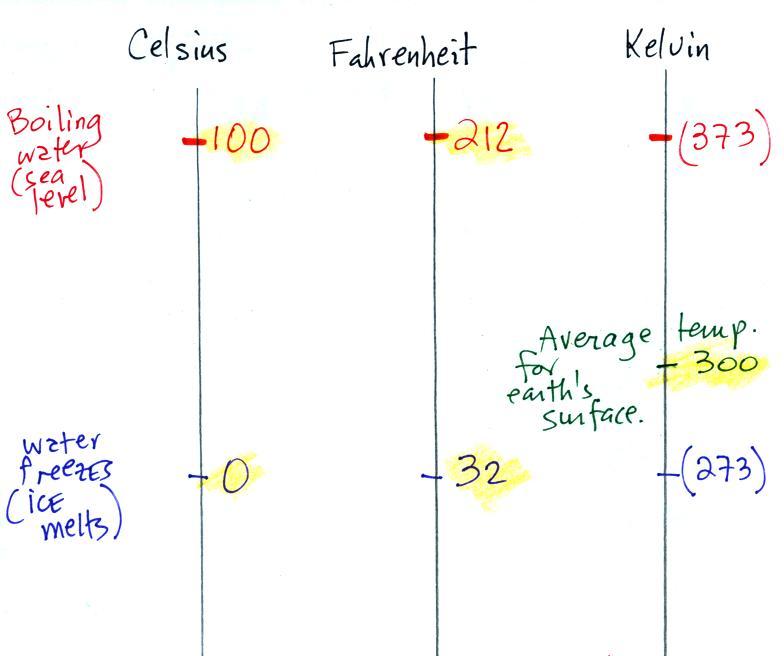 Celsius Fahrenheit Kelvin
Boiling
water
(sea
level)
100 212 (373)
Average temp.
for
earth's
surface.
300
water
freezes
(ice
melts)
0 32 (273)